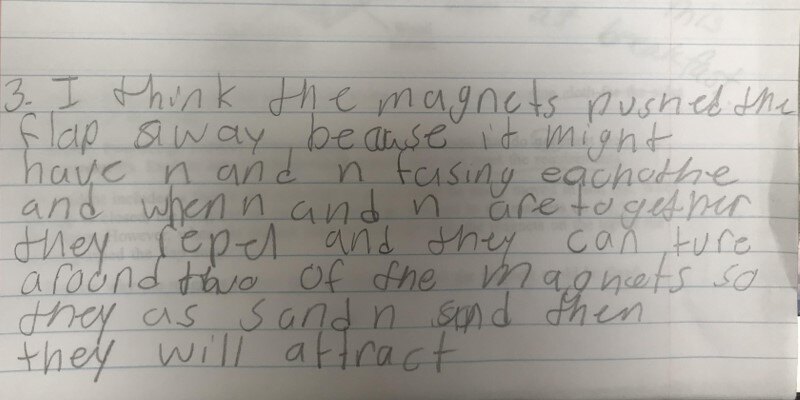 3. I think the magnets pushed the
flap away beause it might
have n and n fasing eachothe
and when n and n are together
they repel and they can ture
around two of the magnets so
they as s and n and then
they will attract